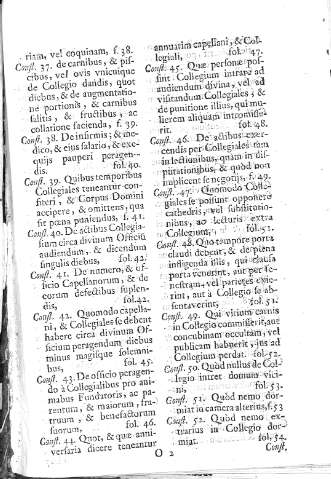 riam, vel coquinam, f. 38.
Const. 37. de carnibus, & pis-
cibus, vel ovis vnicuique
de Collegio dandis, quot
diebus, & de augmentatio-
ne portionis, & carnibus
salitis, & fructibus, ac
collatione facienda, f. 39.
Const. 38. De infirmis; & me-
dico, & eius salario, & exe-
quijs pauperi peragen-
dis. fol. 40.
Const. 39. Quibus temporibus
Collegiales teneantur con-
fiteri, & Corpus Domini
accipere, & omittens, qua
sit pœna puniendus, f. 41.
Const. 40. De actibus Collegia-
lium circa divinum Officiũ
audiendum, & dicendum
singulis diebus, fol. 42.
Const. 41. De numero, & of-
ficio Capellanorum, & de
eorum defectibus suplen-
dis, fol. 42.
Const. 42. Quomodo capella-
ni, & Collegiales se debent
habere circa divinum Of-
ficium peragendum diebus
minus magisque solemni-
bus, fol. 45.
Const. 43. De officio peragen-
do à Collegialibus pro ani-
mabus Fundatoris, ac pa-
rentum, & maiorum, fra-
truum, & benefactorum
suorum, fol. 46.
Const. 44. Quot, & quæ anni-
versaria dicere teneantur
annuatim capellani, & Col-
legiali, fol. 47.
Const. 45. Quæ personæ pos-
sint Collegium intrare ad
audiendum divina, vel ad
visitandum Collegiales, &
de punitione illius, qui mu-
lierem aliquam intromisse-
rit. fol. 48.
Const. 46. De actibus exer-
cendis per Collegiales tam
in lectionibus, quam in dis-
putationibus, & quòd non
implicent se negotijs, f. 49.
Const. 47. Quomodo Colle-
giales se possunt opponere
cathedris, vel substitutio-
nibus, ac lecturis extra
Collegium, fol. 52.
Const. 48. Quo tempore porta
claudi debent, & de pœna
infligenda illis, qui clausa
porta venerint, aut per fe-
nestram, vel parietes exie-
rint, aut à Collegio se ab-
sentaverint, fol. 51.
Const. 49. Qui vitium carnis
in Collegio commiserit, aut
concubinam occultam, vel
publicam habuerit, ius ad
Collegium perdat. fol. 52.
Const. 50. Quòd nullus de Col-
legio intret domum vici-
ni, fol. 53.
Const. 51. Quòd nemo dor-
miat in camera alterius, f. 53
Const. 52. Quòd nemo ex-
trarius in Collegio dor-
miat. fol. 54.
O 2 Const.